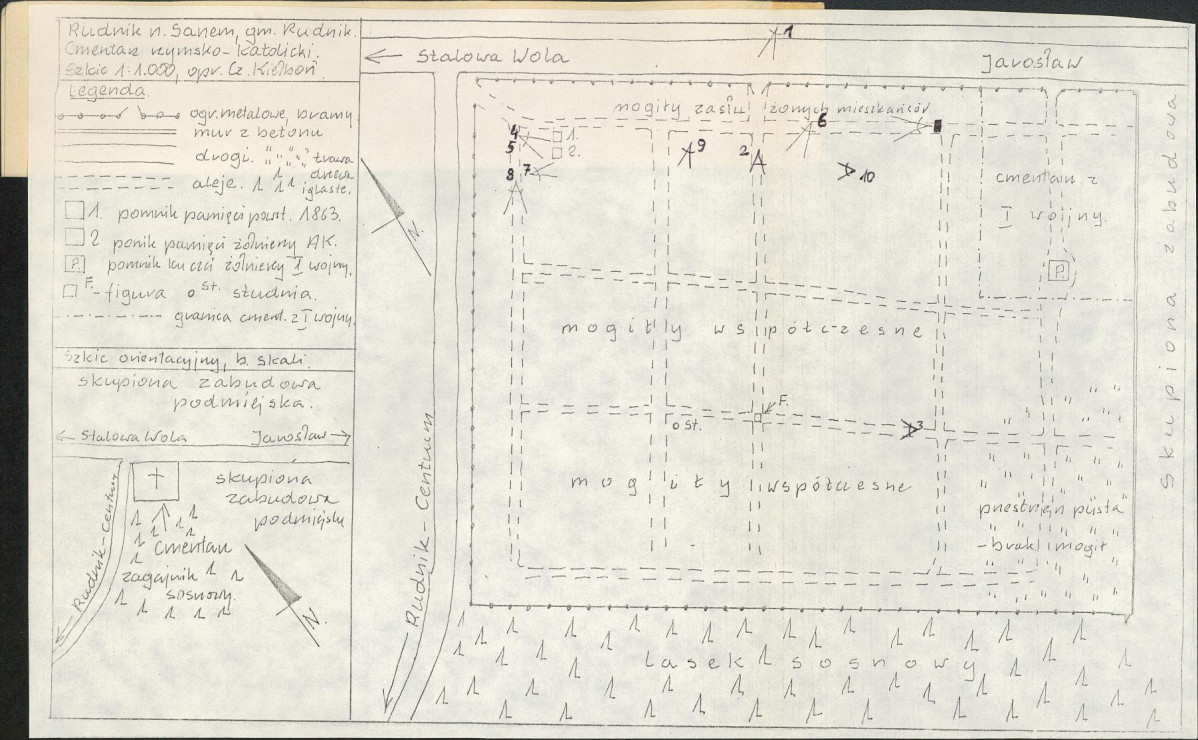 Rudnik n. Sanem, gm. Rudnik.
Cmentarz rzymsko-katolicki.
Szkic 1:1.000, opr. Cz. Kiełboń.
Legenda.
ogr. metalowe, bramy
mur z betonu
drogi. trawa
aleje. drzewa
iglaste.
1. pomnik pamięci powst. 1863.
2 ponik pamięci żołnierzy AK.
P. pomnik ku czci żołnierzy I wojny.
F. - figura o St. studnia.
granica cment. z I wojny.
Szkic orientacyjny, b. skali.
skupiona zabudowa
podmiejska.
← Stalowa Wola Jarosław →
Rudnik-Centrum
skupiona
zabudowa
podmiejska
Cmentarz
zagajnik
sosnowy.
N.
← Stalowa Wola
1
Jarosław
N.
Rudnik-Centrum
mogiły zasłużonych mieszkańców
4
5
1.
2.
8 7
9
2
6
10
cmentarz z
I wojny.
P.
mogiły współczesne
F.
o St.
3
mogiły współczesne
przestrzeń pusta
- brak mogił
lasek sosnowy
Skupiona zabudowa